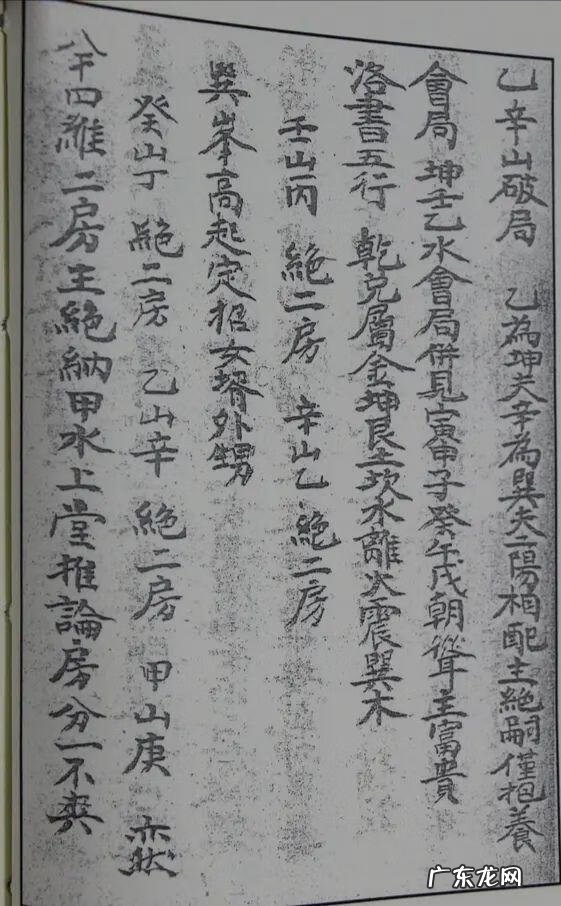 乙辛山破局 乙為坤夫辛為巽夫二陽相配主絕嗣僅抱養
會局 坤壬乙水會局併見寅甲子癸午戌朝聳主富貴
洛書五行 乾兌屬金坤艮土坎水離火震巽木
壬山丙 絕二房 辛山乙 絕二房
巽峯高起定招女壻外甥
癸山丁 絕二房 乙山辛 絕二房 甲山庚 亦然
八干四維二房主絕納甲水上堂推論房分一不爽
广东龙网